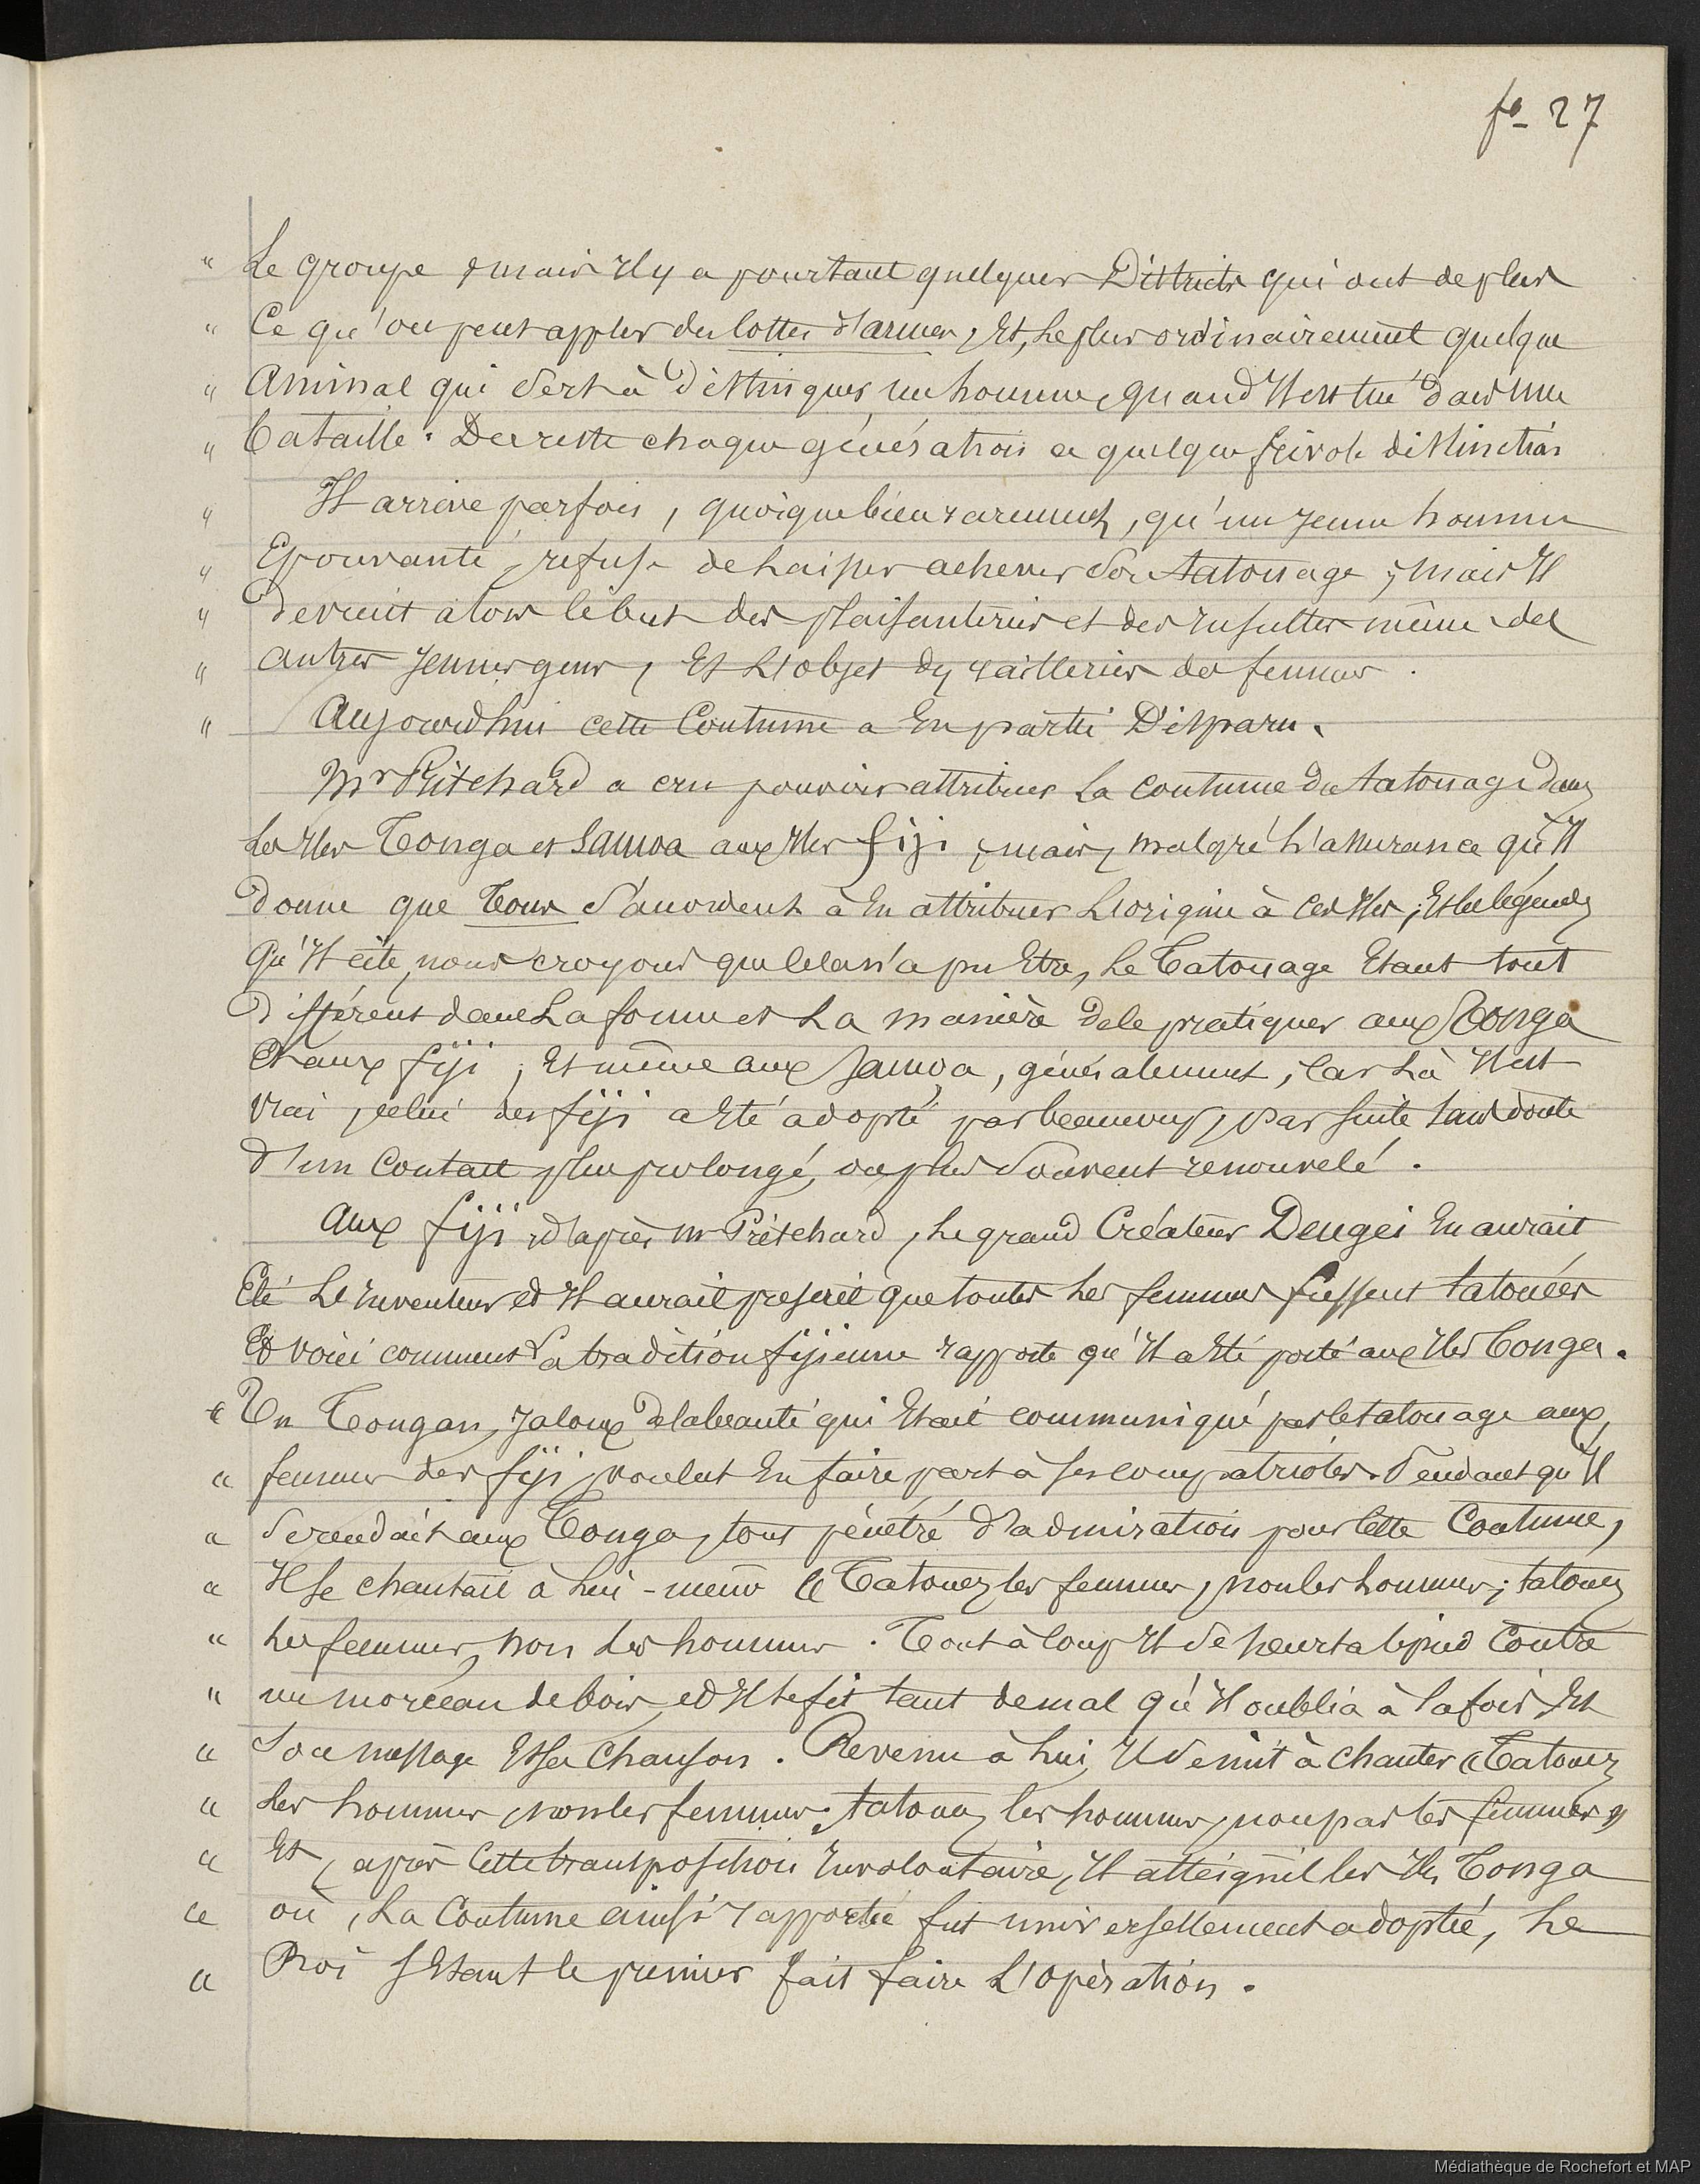 fo_ 27
" Le groupe ; mais Il y a pourtant quelques Districts qui ont de plus
" Ce qu'on peut appler des lottes d'armes, Et, le plus ordinairement quelque
" Animal qui Sert à Distinguer un homme, quand Il est tué dans une
" bataille. Du reste chaque génération a quelque frivole distinction
" Il arrive parfois, quoique bien rarement, qu'un Jeune homme
" Epouvanté, refuse de Laisser achever Son Tatouage ; mais Il
" devient alors le but des plaisanteries et des Insultes même des
" autres Jeunes gens, Et L'objet des railleries des femmes.
" Aujourd'hui cette Coutume a En partie Disparu.
Mr Pritchard a cru pouvoir attribuer La coutume du Tatouage dans
Les Iles Tonga et Samoa aux Iles Fiji ; mais, malgré L'assurance qu'Il
Donne que Tous S'accordent à En attribuer L'origine à Ces Iles ; Et les légendes
Qu'Il cite, nous croyons que cela n'a pu Etre, Le Tatouage Etant tout
Différent dans La forme et La manière de le pratiquer aux Tonga
Et aux fiji, Et même aux Samoa, généralement, ; Car Là Il est
Vrai, celui des fiji a Eté adopté par beaucoup, par suite Sans doute
d'un Contact plus prolongé, ou plus Souvent renouvelé.
Aux fiji d'après m Pritchard, Le grand Créateur Dengei En aurait
Eté L'Inventeur et Il aurait prescrit que toutes Les femmes fussent tatouées
Et voici comment La tradition fijienne rapporte qu'Il a Eté porté aux Iles Tonga.
" Un Tongan, Jaloux de la beauté qui Etait communiqué par le tatouage aux
" femmes des fiji, voulut En faire part à ses compatriotes. Pendant qu'Il
" Se rendait aux Tonga, tout pénétré d'admiration pour Cette Coutume,
" Il Se chantait à Lui-même " Tatouez les femmes, non les hommes ; tatouez
" Les femmes, non Les hommes. Tout à Coup Il Se heurta le pied Contre
" un morceau de bois, et Il Se fit tant de mal qu'Il oublia à la fois Et
" Son message Et Sa Chanson. Revenu à Lui, Il Se mit à Chanter " Tatouez
" Les hommes, non les femmes ; tatouez les hommes, non pas les femmes "
" Et, après Cette transposition Involontaire, Il atteignit les Iles Tonga
" où, La Coutume ainsi rapportée fut universellement adoptée, Le
" Roi S'Etant le premier fait faire L'opération.
Médiathèque de Rochefort et MAP